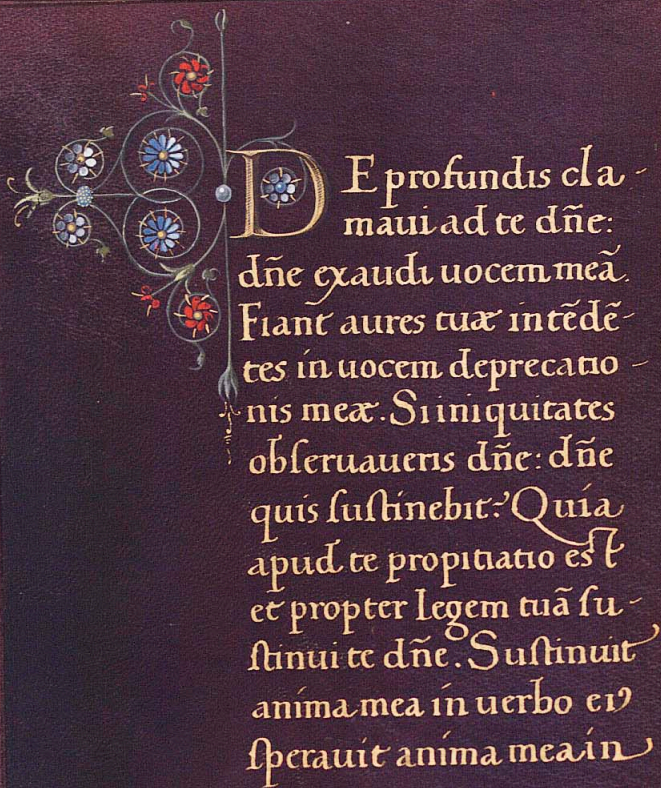 DE profundis cla-
maui ad te dñe:
dñe exaudi uocem meã.
Fiant aures tuæ intẽdẽ-
tes in uocem deprecatio-
nis meæ. Si iniquitates
obſeruaueris dñe: dñe
quis ſuſtinebit? Quia
apud te propitiatio eſt
et propter legem tuã ſu-
ſtinui te dñe. Suſtinuit
anima mea in uerbo eiꝰ
ſperauit anima mea in